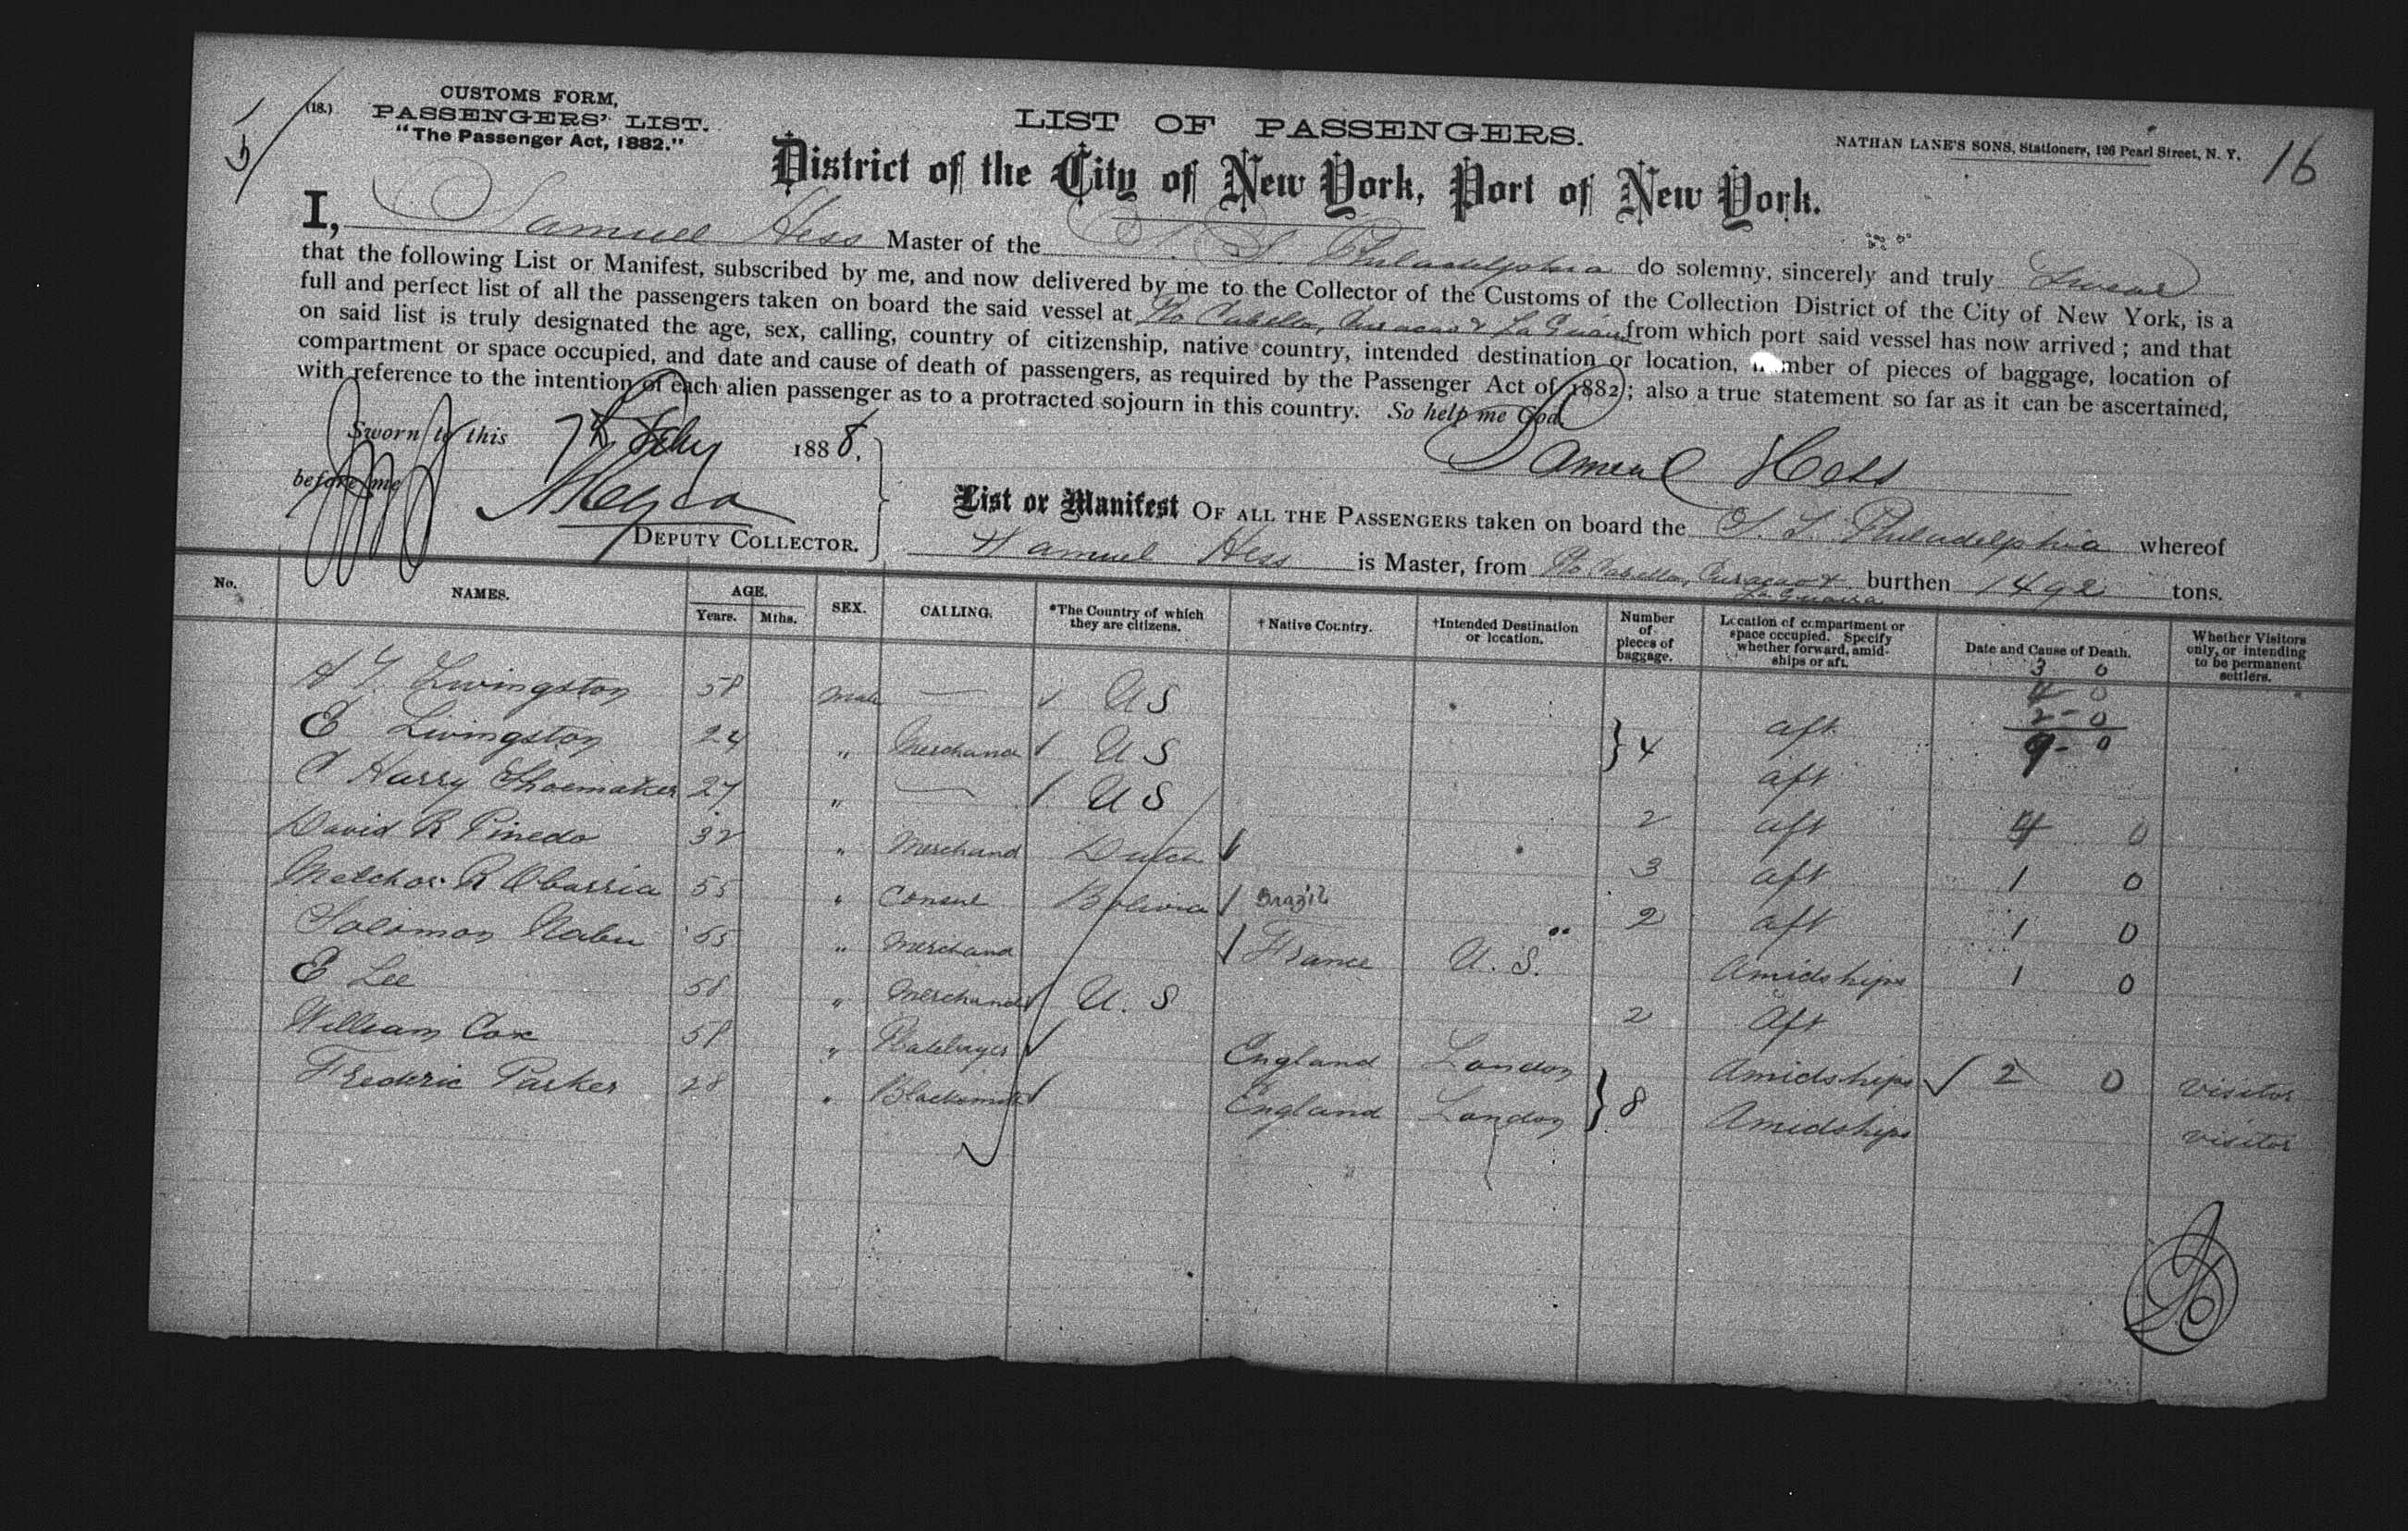 CUSTOMS FORM,
(18.) PASSENGERS' LIST.
"The Passenger Act, 1882."
LIST OF PASSENGERS.
NATHAN LANE'S SONS, Stationers, 126 Pearl Street, N. Y.
16
District of the City of New York, Port of New York.
I, Samuel Hess Master of the S. S. Philadelphia do solemny, sincerely and truly Swear
that the following List or Manifest, subscribed by me, and now delivered by me to the Collector of the Customs of the Collection District of the City of New York, is a
full and perfect list of all the passengers taken on board the said vessel at Pto Cabello, Curacao & La Guaira from which port said vessel has now arrived; and that
on said list is truly designated the age, sex, calling, country of citizenship, native country, intended destination or location, number of pieces of baggage, location of
compartment or space occupied, and date and cause of death of passengers, as required by the Passenger Act of 1882; also a true statement so far as it can be ascertained,
with reference to the intention of each alien passenger as to a protracted sojourn in this country. So help me God.
Sworn to this 1888.
before me
Samuel Hess
DEPUTY COLLECTOR.
List or Manifest OF ALL THE PASSENGERS taken on board the S. S. Philadelphia whereof
Samuel Hess is Master, from Pto Cabello, Curacao & La Guaira burthen 1492 tons.
No. NAMES. AGE. Years. Mths. SEX. CALLING. *The Country of which they are citizens. †Native Country. †Intended Destination or location. Number of pieces of baggage. Location of compartment or space occupied. Specify whether forward, amidships or aft. Date and Cause of Death. Whether Visitors only, or intending to be permanent settlers.
3 0
4 0
2 - 0
9 - 0
Livingston 58 Male — US aft
E Livingston 24 " Merchand US 4 aft
Harry Shoemaker 27 " — US 2 aft 4 0
David R Pinedo 32 " Merchand Dutch 3 aft 1 0
Melchor R Obarria 55 " Consul Bolivia Brazil 2 aft 1 0
Solomon 55 " Merchand France U. S. Amidships 1 0
E Lee 58 " Merchand U. S 2 Aft
William Cox 58 " England London Amidships 2 0 visitor
Frederic Parker 28 " Blacksmith England London 8 Amidships visitor